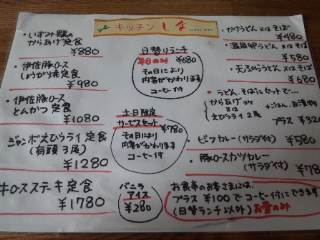 キッチン しま
・いずみ鶏の
からあげ定食
¥880
・伊佐豚ロース
しょうが焼定食
¥980
・伊佐豚ロース
とんかつ定食
¥1080
・ジャンボえびフライ定食
(有頭3尾)
¥1280
牛ロースステーキ定食
¥1780
日替りランチ
平日のみ ¥680
その日により
内容がかわります
コーヒー付
土日限定
サービスセット
¥780
その日により
内容がかわります
コーヒー付
バニラ
アイス
¥280
・かけうどん 又は そば
¥480
・温泉卵うどん 又は そば
¥580
・天ぷらうどん 又は そば
¥680
・うどん、そばにセットで…
からあげ
えびフライ2尾
プラス ¥320
ビーフカレー(サラダ付)
¥580
豚ロースカツカレー
(サラダ付) ¥780
お食事のお客さまには、
プラス ¥100で コーヒー付にできます
(日替ランチ以外) お昼のみ